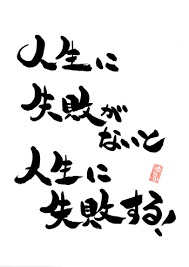 人生に
失敗が
ないと
人生に
失敗する!